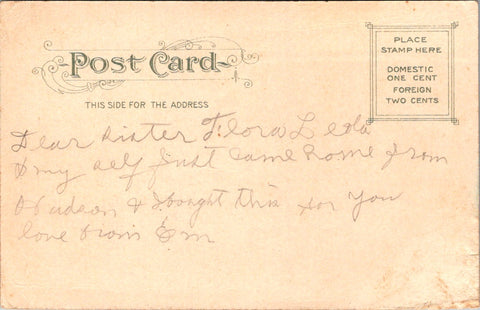 Post Card
THIS SIDE FOR THE ADDRESS
PLACE
STAMP HERE
DOMESTIC
ONE CENT
FOREIGN
TWO CENTS
Dear sister Flora Leola
& my self just came home from
Hudson & I bought this for You
love from Em